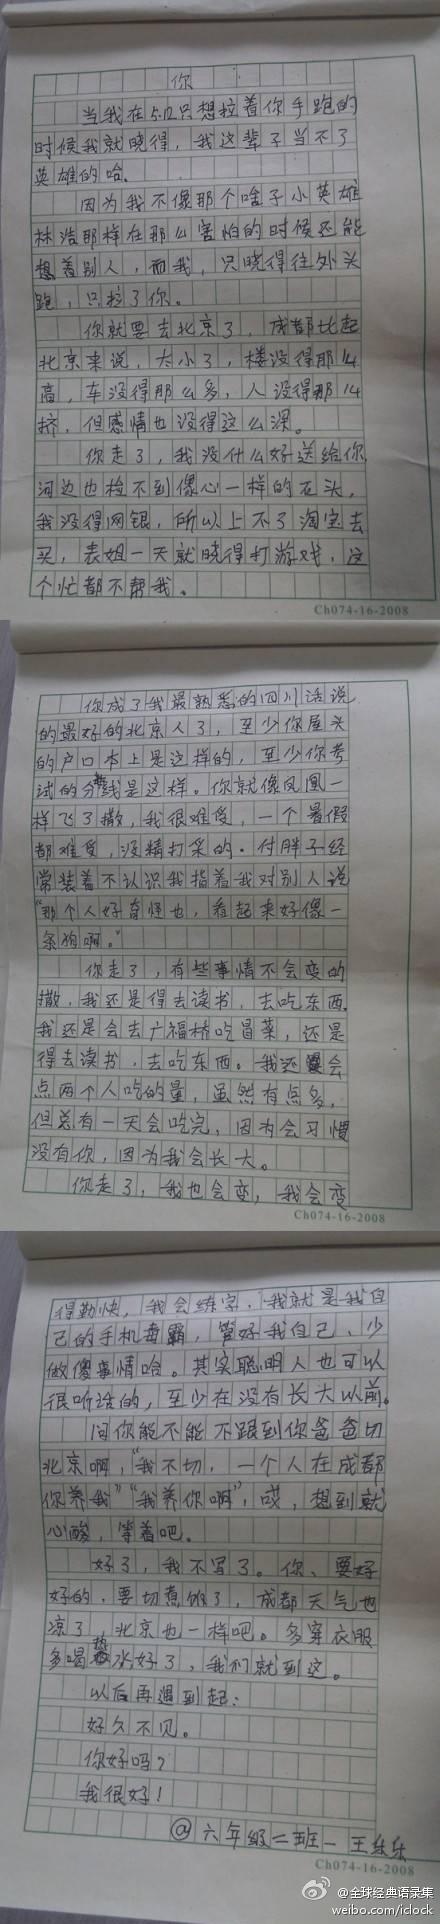 你
当我在5.12只想拉着你手跑的
时候我就晓得,我这辈子当不了
英雄的哈.
因为我不像那个啥子小英雄
林浩那样在那么害怕的时候还能
想着别人,而我,只晓得往外头
跑,只拉了你。
你就要去北京了,成都比起
北京来说,太小了,楼没得那么
高,车没得那么多,人没得那么
挤,但感情也没得这么深。
你走了,我没什么好送给你
河边也检不到像心一样的石头,
我没得网银,所以上不了淘宝去
买,表姐一天就晓得打游戏,这
个忙都不帮我。
Ch074-16-2008
你成了我最熟悉的四川话说
的最好的北京人了,至少你屋头
的户口本上是这样的,至少你考
试的分数线是这样。你就像凤凰一
样飞了撒,我很难受,一个暑假
都难受,没精打采的.付胖子经
常装着不认识我指着我对别人说
“那个人好奇怪也,看起来好像一
条狗啊。”
你走了,有些事情不会变的
撒,我还是得去读书,去吃东西.
我还是会去广福桥吃冒菜,还是
得去读书,去吃东西。我还会
点两个人吃的量,虽然有点多,
但总有一天会吃完,因为会习惯
没有你,因为我会长大。
你走了,我也会变,我会变
Ch074-16-2008
得勤快,我会练字,我就是我自
己的手机毒霸,管好我自己、少
做傻事情哈。其实聪明人也可以
很听话的,至少在没有长大以前。
问你能不能不跟到你爸爸切
北京啊,“我不切,一个人在成都
你养我”“我养你啊”,哎,想到就
心酸,等着吧。
好了,我不写了。你、要好
好的,要切煮饭了,成都天气也
凉了,北京也一样吧。多穿衣服
多喝热水好了,我们就到这。
以后再遇到起:
好久不见。
你好吗?
我很好!
@六年级二班一王乐乐
Ch074-16-2008
@全球经典语录集
weibo.com/iclock